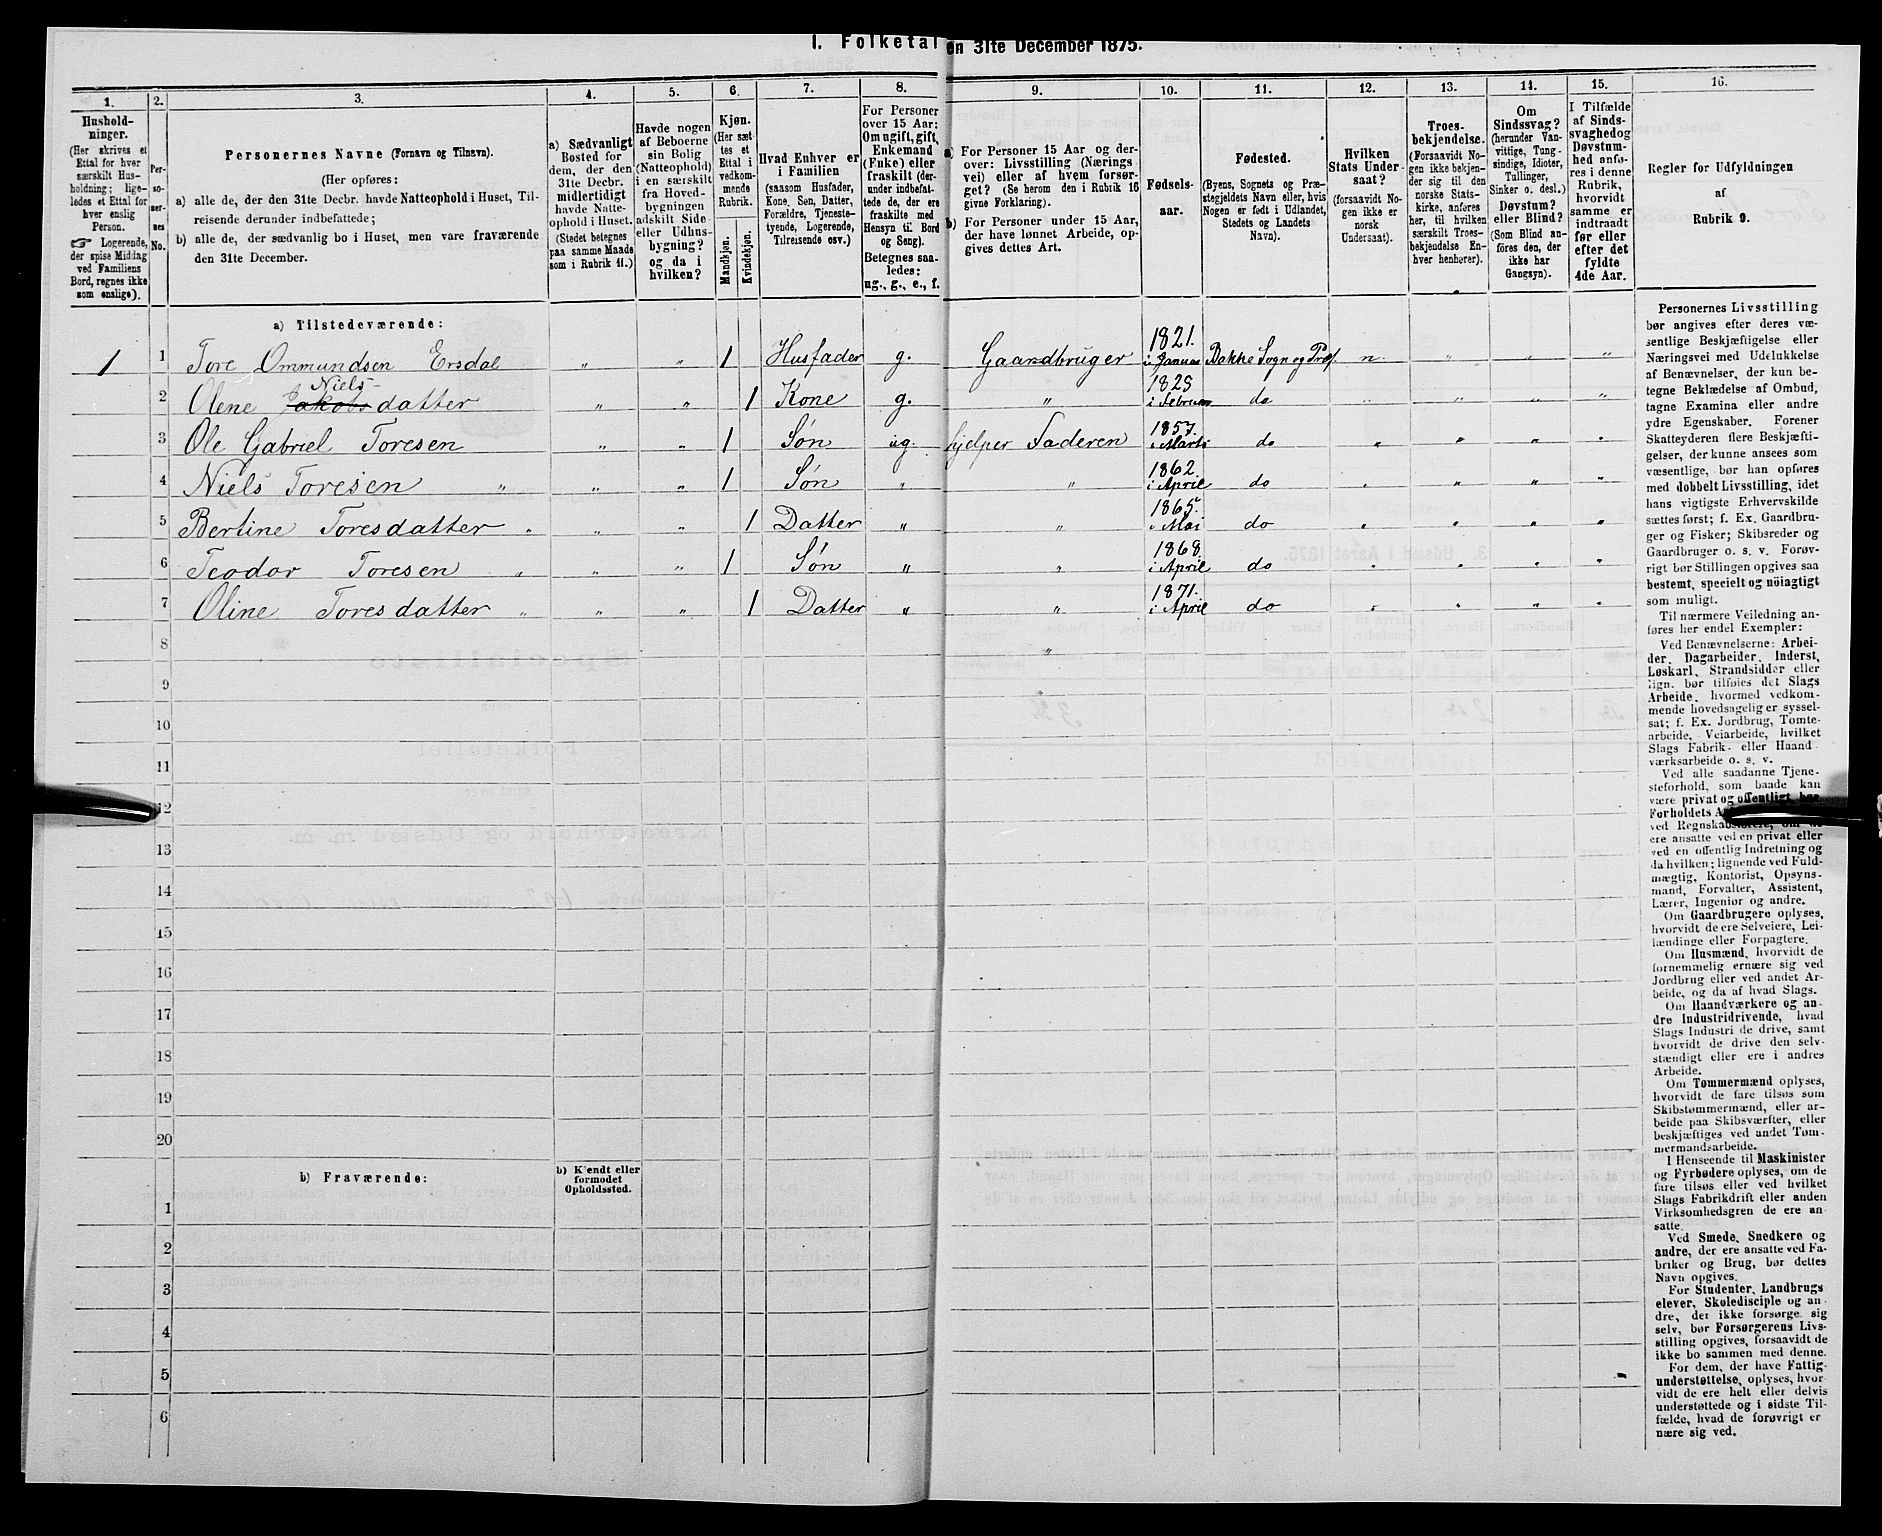 I. Folketal
øn 31te December 1875.
1. 2. 3. 4. 5. 6. 7. 8. 9. 10. 11. 12. 13. 14. 15. 16.
Hushold-
ninger.
(Her skrives et
Ettal for hver
særskilt Hus-
holdning; lige-
ledes et Ettal for
hver enslig
Person.
☞ Logerende,
der spise Middag
ved Familiens
Bord, regnes ikke
som enslige).
Per-
so-
ner-
nes
No.
Personernes Navne (Fornavn og Tilnavn).
(Her opføres:
a) alle de, der den 31te Decbr. havde Natteophold i Huset, Til-
reisende derunder indbefattede;
b) alle de, der sædvanlig bo i Huset, men vare fraværende
den 31te December.
a) Sædvanligt
Bosted for
dem, der den
31te Decbr.
midlertidigt
havde Natte-
ophold i Huset.
(Stedet betegnes
paa samme Maade
som i Rubrik 11.)
Havde nogen
af Beboerne
sin Bolig
(Natteophold)
i en særskilt
fra Hoved-
bygningen
adskilt Side-
eller Udhus-
bygning?
og da i
hvilken?
Kjøn.
(Her sæt-
tes et
Ettal i
vedkom-
mende
Rubrik.
Mandkjøn.
Kvindekjøn.
Hvad Enhver er
i Familien
(saasom Husfader,
Kone, Søn, Datter,
Forældre, Tjeneste-
tyende, Logerende,
Tilreisende osv.)
For Personer
over 15 Aar:
Om ugift, gift,
Enkemand
(Enke) eller
fraskilt (der-
under indbefat-
tede de, der ere
fraskilte med
Hensyn til Bord
og Seng).
Betegnes saa-
ledes:
ug., g., e., f.
a) For Personer 15 Aar og der-
over: Livsstilling (Nærings
vei) eller af hvem forsør-
get? (Se herom den i Rubrik 16
givne Forklaring).
b) For Personer under 15 Aar,
der have lønnet Arbeide, op-
gives dettes Art.
Fødsels-
aar.
Fødested.
(Byens, Sognets og Præ-
stegjeldets Navn eller, hvis
Nogen er født i Udlandet,
Stedets og Landets
Navn).
Hvilken
Stats Under-
saat?
(forsaavidt No-
gen ikke er
norsk
Undersaat).
Troes-
bekjendelse.
(Forsaavidt No-
gen ikke bekjen-
der sig til den
norske Stats-
kirke, anføres
her, til hvilken
særskilt Troes-
bekjendelse En-
hver henhører).
Om
Sindssvag?
(herunder Van-
vittige, Tung-
sindige, Idioter,
Tullinger,
Sinker o. desl.)
Døvstum?
eller Blind?
(Som Blind an-
føres den, der
ikke har
Gangsyn).
I Tilfælde
af Sinds-
svaghed og
Døvstum-
hed anfø-
res i denne
Rubrik,
hvorvidt
samme er
indtraadt
før eller
efter det
fyldte
4de Aar.
Regler for Udfyldningen
af
Rubrik 9.
a) Tilstedeværende:
1 1 Tore Ommundsen Ersdal " " 1 Husfader g. Gaardbruger 1821. i Januar Bakke Sogn og Præs. n. " " "
2 Olene Jakobs Niels datter " " 1 Kone g. " 1825 i Februar do " " " "
3 Ole Gabriel Toresen " " 1 Søn ug. hjelper Faderen 1857. i Marts do " " " "
4 Niels Toresen " " " 1 Søn " " 1862. i April do " " " "
5 Bertine Toresdatter " " " 1 Datter " " 1865. i Mai do " " " "
6 Teodor Toresen " " " 1 Søn " " 1868. i April do " " " "
7 Oline Toresdatter " " " 1 Datter " " 1871. i April do " " " "
8 "
9 "
10
11
12
13
14
15
16
17
18
19
20
b) Fraværende:
b) Kjendt eller
formodet
Opholdssted.
1
2
3
4
5
6
Personernes Livsstilling
bør angives efter deres væ-
sentlige Beskjæftigelse eller
Næringsvei med Udelukkelse
af Benævnelser, der kun be-
tegne Beklædelse af Ombud,
tagne Examina eller andre
ydre Egenskaber. Forener
Skatteyderen flere Beskjæfti-
gelser, der kunne ansees som
væsentlige, bør han opføres
med dobbelt Livsstilling, idet
hans vigtigste Erhvervskilde
sættes først; f. Ex. Gaardbru-
ger og Fisker; Skibsreder og
Gaardbruger o. s. v. Forøv-
rigt bør Stillingen opgives saa
bestemt, specielt og nøiagtigt
som muligt.
Til nærmere Veiledning an-
føres her endel Exempler:
Ved Benævnelserne: Arbei-
der, Dagarbeider, Inderst,
Løskarl, Strandsidder eller
lign. bør tilføies det Slags
Arbeide, hvormed vedkom-
mende hovedsagelig er syssel-
sat; f. Ex. Jordbrug, Tomte-
arbeide, Veiarbeide, hvilket
Slags Fabrik- eller Haand
værksarbeide o. s. v.
Ved alle saadanne Tjene-
steforhold, som baade kan
være privat og offentligt, bør
Forholdets
ved
ere ansatte ved en privat eller
ved en offentlig Indretning og
da hvilken; lignende ved Fuld-
mægtig, Kontorist, Opsyns-
mand, Forvalter, Assistent,
Lærer, Ingeniør og andre.
Om Gaardbrugere oplyses,
hvorvidt de ere Selveiere, Lei-
lændinge eller Forpagtere.
Om Husmænd, hvorvidt de
fornemmelig ernære sig ved
Jordbrug eller ved andet Ar-
beide, og da af hvad Slags.
Om Haandværkere og an-
dre Industridrivende, hvad
Slags Industri de drive, samt
hvorvidt de drive den selv-
stændigt eller ere i andres
Arbeide.
Om Tømmermænd oplyses,
hvorvidt de fare tilsøs som
Skibstømmermænd, eller ar-
beide paa Skibsværfter, eller
beskjæftiges ved andet Tøm-
mermandsarbeide.
I Henseende til Maskinister
og Fyrbødere oplyses, om de
fare tilsøs eller ved hvilket
Slags Fabrikdrift eller anden
Virksomhedsgren de ere an-
satte.
Ved Smede, Snedkere og
andre, der ere ansatte ved Fa-
briker og Brug, bør dettes
Navn opgives.
For Studenter, Landbrugs
elever, Skoledisciple og an-
dre, der ikke forsørge sig
selv, bør Forsørgerens Livs-
stilling opgives, forsaavidt de
ikke bo sammen med denne.
For dem, der have Fattig-
understøttelse, oplyses, hvor-
vidt de ere helt eller delvis
understøttede og i sidste Til-
fælde, hvad de forøvrigt er
nære sig ved.